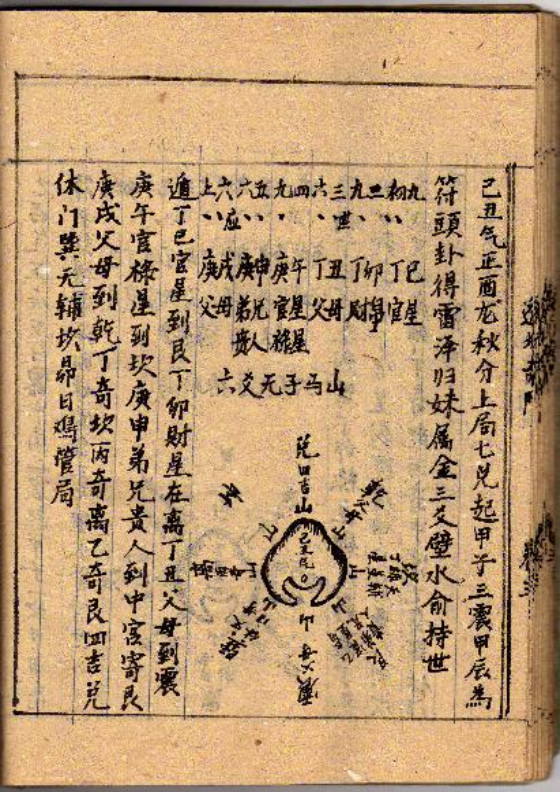 己丑气正酉龙秋分上局七兑起甲子三震甲辰為
符頭卦得雷泽归妹属金三爻壁水俞持世
初九丶丁巳官星
二九丶丁卯財
三六世丶丁丑父母
四九丶庚午官星祿星
五六丶庚申弟兄贵人
上六应丶庚戌父母
六爻无子马山
遁丁巳官星到艮丁卯財星在离丁丑父母到震
庚午官祿星到坎庚申弟兄贵人到中宫寄艮
庚戌父母到乾丁奇坎丙奇离乙奇艮四吉兑
休门巽元辅坎昴日鸡管局
兑四吉山
己丑气
乾父母山
卯
震父母
艮